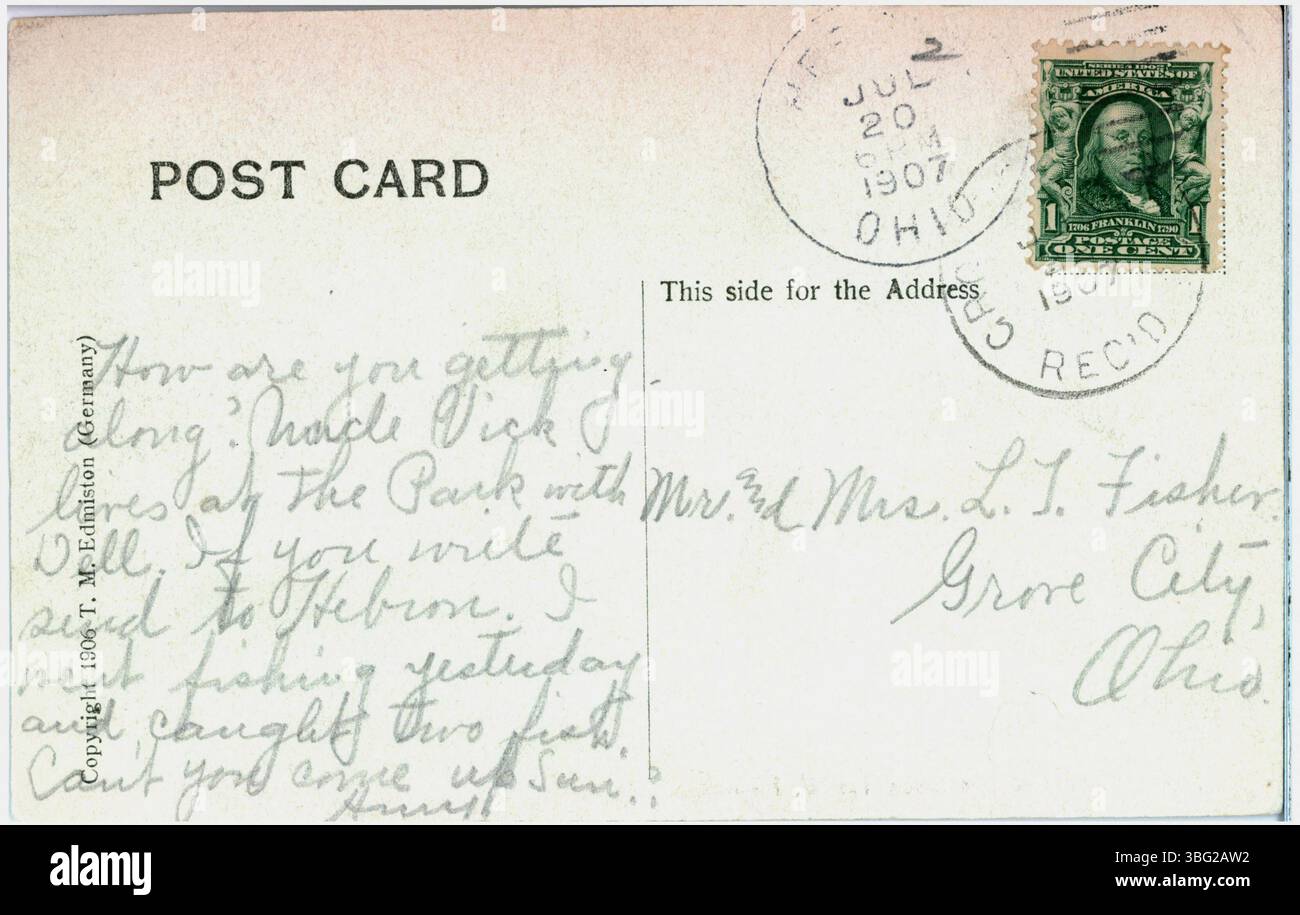 2
JUL
20
6 PM
1907
OHIO
SERIES 1902
UNITED STATES OF
AMERICA
1 1706 FRANKLIN 1790 1
POSTAGE
ONE CENT
POST CARD
1907
REC'D
This side for the Address
Copyright 1906 T. M. Edmiston (Germany)
How are you getting
along? Uncle Vick
lives at the Park with
Dell. If you write
send to Hebron. I
went fishing yesterday
and caught two fish.
Can't you come up Sun.?
Mr. and Mrs. L. T. Fisher.
Grove City,
Ohio.
alamy
Image ID: 3BG2AW2
www.alamy.com